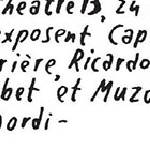 théâtre 13, 24
exposent Cap
rière, Ricardo
bet, et Muzo
ordi-